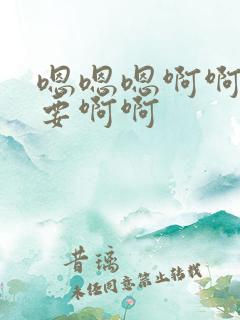 嗯嗯嗯啊啊
要啊啊
昔璃
未经同意禁止转载